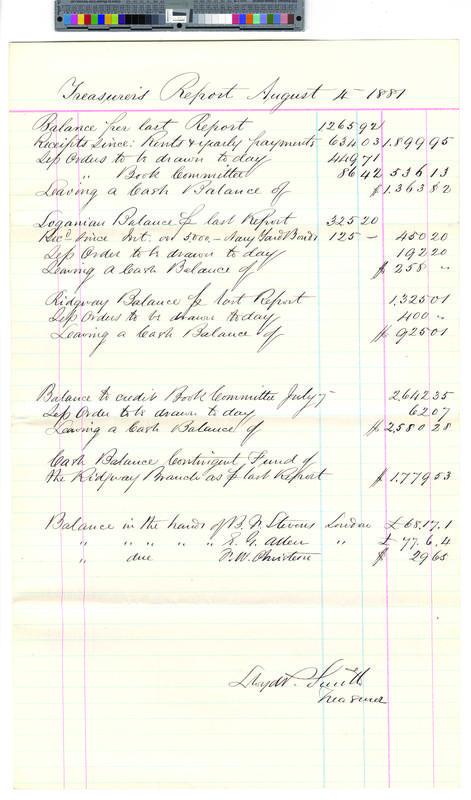 Treasurer's Report August 4 1881
Balance per last Report 1265 92
Receipts since: Rents & yearly payments 634 03 1.899 95
Less Orders to be drawn to day 449 71
" Book Committee 86 42 536 13
Leaving a Cash Balance of $1.363 82
Loganian Balance p last Report 325 20
Rec'd since Int. on 5,000 - Navy Yard Bonds 125 - 450 20
Less Order to be drawn to day 192 20
Leaving a Cash Balance of $ 258 "
Ridgway Balance p last Report 1,325 01
Less Orders to be drawn today 400 "
Leaving a Cash Balance of $ 925 01
Balance to credit Book Committee July 7 2642 35
Less Order to be drawn to day 62 07
Leaving a Cash Balance of $ 2580 28
Cash Balance Contingent Fund of
the Ridgway Branch as p last Report $ 1.779 53
Balance in the hands of B. F. Stevens London £ 68.17.1
" " " " " E. G. Allen " £ 77.6.4
" due F. W. Christern $ 29 65
Lloyd P. Smith
Treasurer